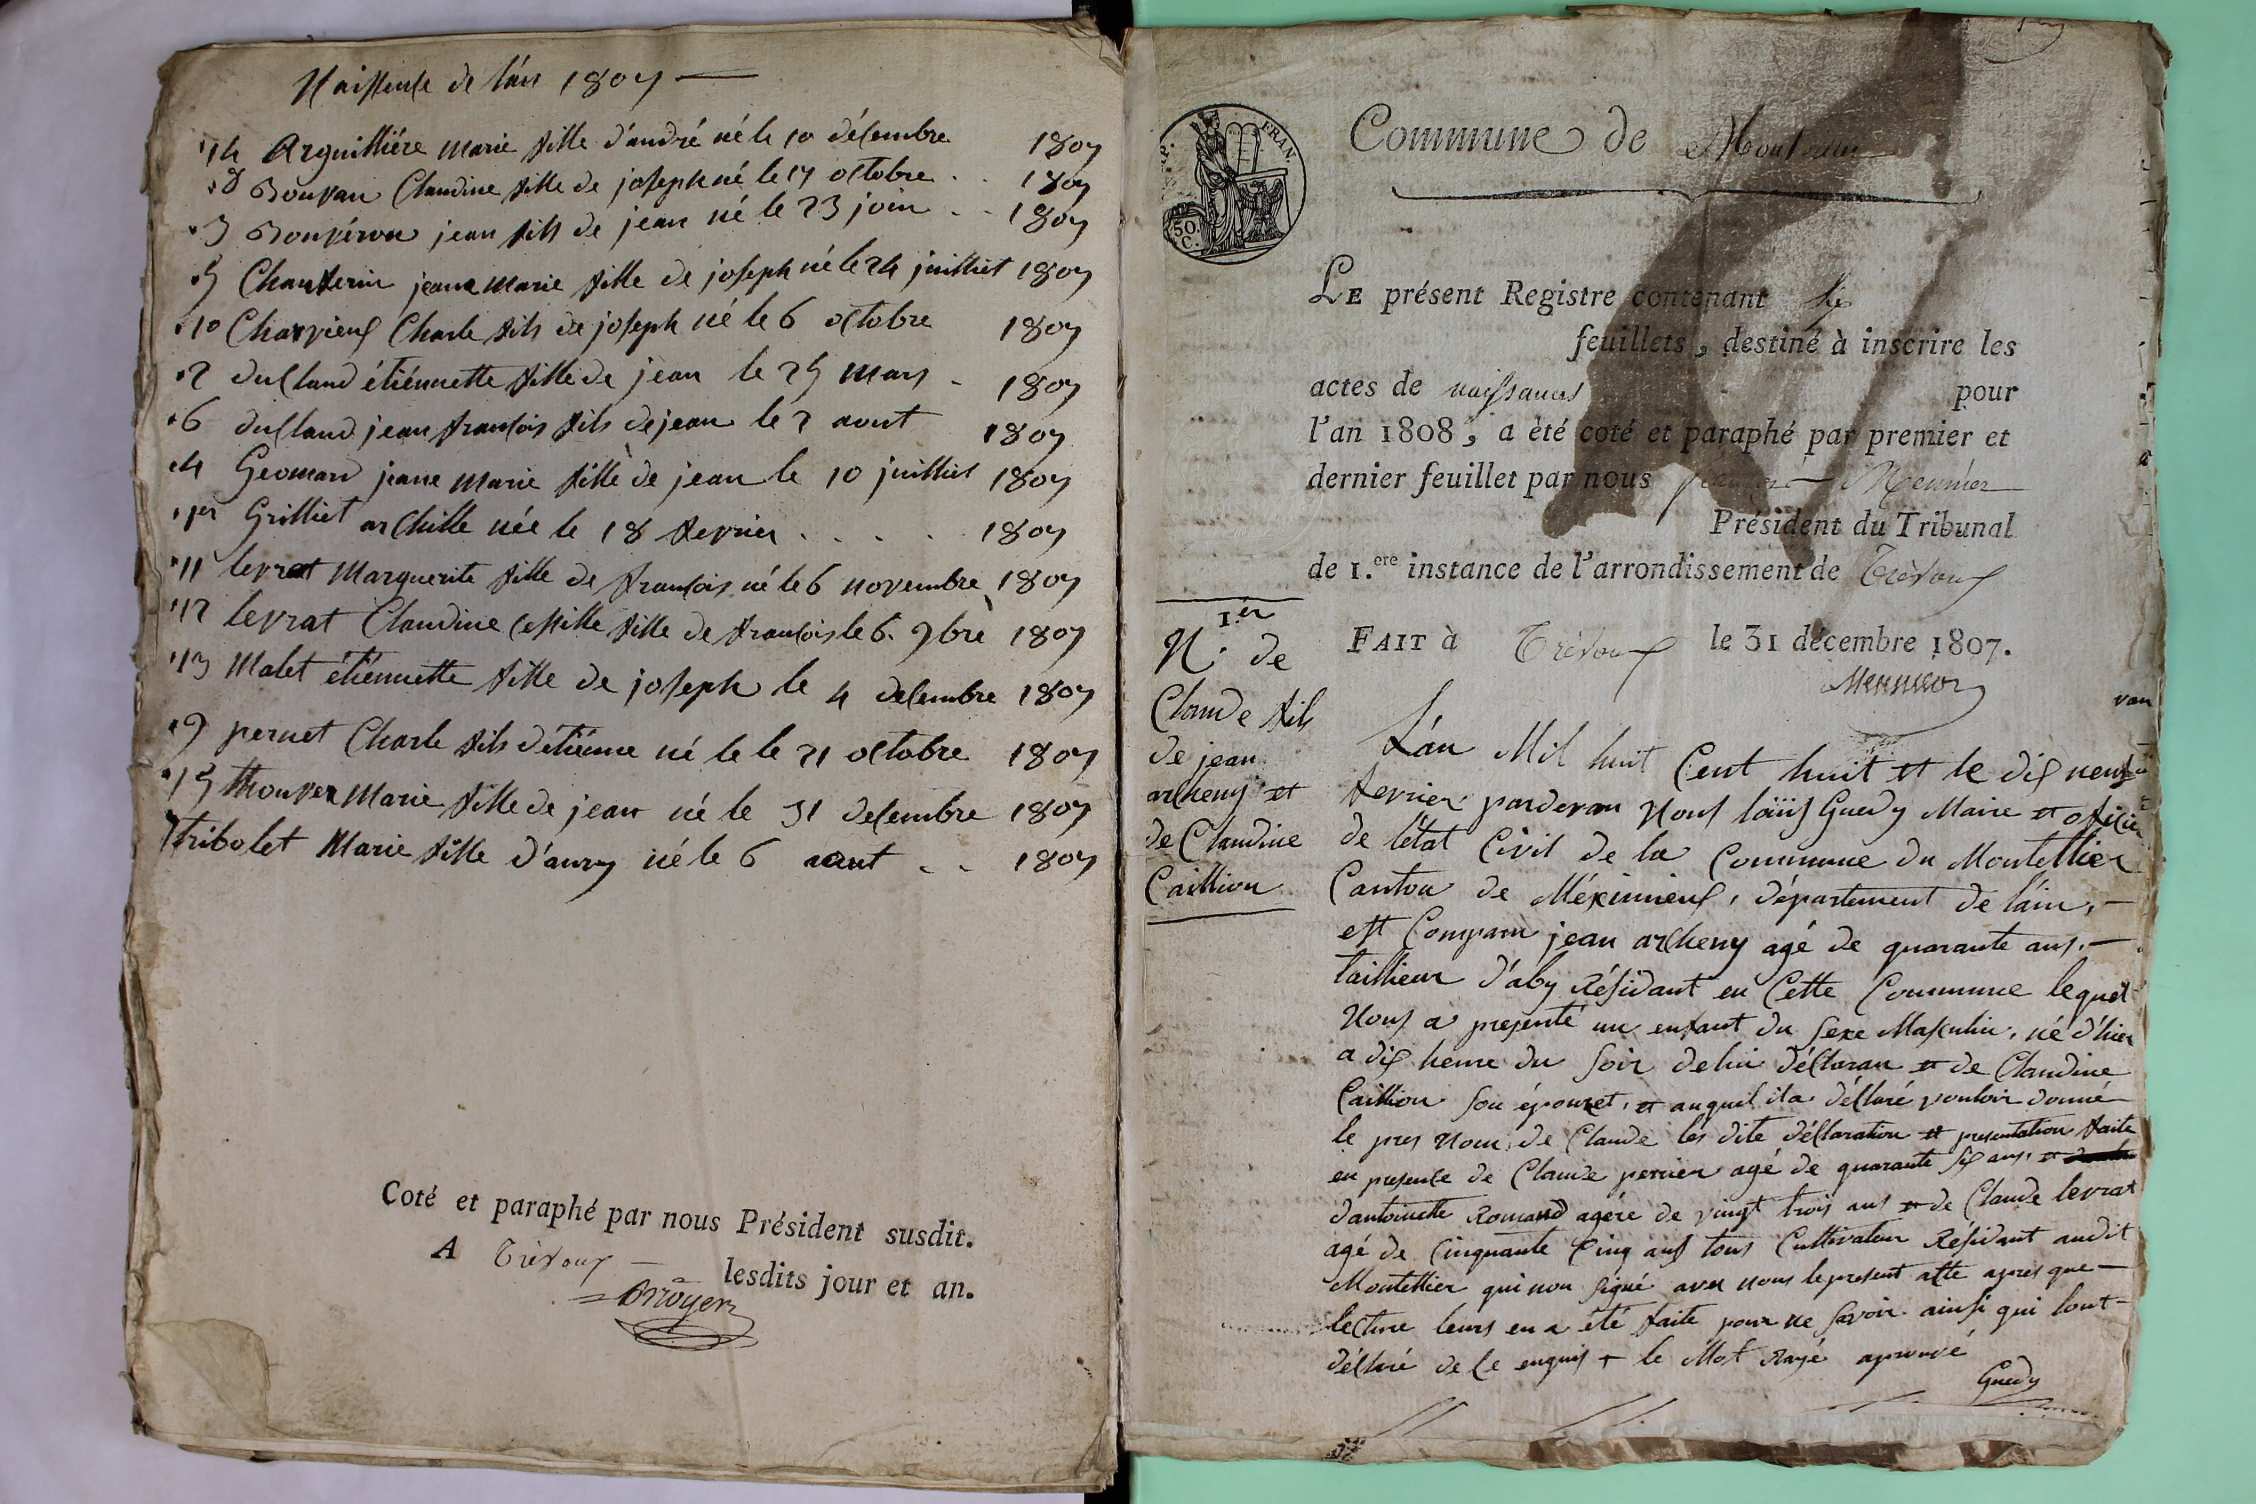 Naissence de l'an 1807
14 Arguilliére marie fille d'andré né le 10 décembre 1807
8 Bouvan Claudine fille de joseph né le 17 octobre 1807
3 Bonpéron jean fils de jean né le 23 join 1807
5 Chanterin jeane marie fille de joseph né le 24 juilliet 1807
10 Charvieux Charle fils de joseph né le 6 octobre 1807
2 duclaud étiénnette fille de jean le 25 mars 1807
6 duclaud jean francois fils de jean le 2 aout 1807
4 Geomard jeane marie fille de jean le 10 juilliet 1807
1er Grilliet archille née le 18 fevrier 1807
11 levrat Marguerite fille de francois né le 6 novembre 1807
12 levrat Claudine cesille fille de francois le 6. 9bre 1807
13 Malet étiénnette fille de joseph le 4 decembre 1807
9 pernet Charle fils d'étiénne né le le 21 octobre 1807
15 thouver Marie fille de jean né le 31 decembre 1807
7 tribolet Marie fille d'aury né le 6 aout 1807
Coté et paraphé par nous Président susdit.
A Trévoux lesdits jour et an.
FRAN.
50.
C.
Commune de
LE présent Registre contenant six
feuillets, destiné à inscrire les
actes de naissances pour
l'an 1808, a été coté et paraphé par premier et
dernier feuillet par nous Meunier
Président du Tribunal
de 1.ere instance de l'arrondissement de Trévoux
FAIT à Trévoux le 31 décembre 1807.
Meunier
1.er
N. de
Claude fils
de jean
archeny et
de Claudine
Caillion
L'an Mil huit Cent huit et le dix neuf
fevrier pardevan Nous loüis Guedy Maire et oficier
de l'état Civil de la Commune du Montellier
Canton de Méximieux, département de l'ain,
est Comparu jean archeny agé de quarante ans,
taillieur d'aby Résidant en Cette Commune lequel
Nous a presenté un enfant du sexe Masculin, né d'hier
a dix heure du soir de lui déclaran et de Claudine
Caillion son épouzet, et auquel il a décl­aré vouloir donné
le pres Nom de Claude les dite déclaration et presentation faite
en presence de Claude perrier agé de quarante six ans, et
d'antoinette Romand agére de vingt trois ans et de Claude levrat
agé de Cinquante Cinq ans tous Cultivateur Résidant audit
Montellier qui non signé avec nous le present acte apres que
lecture leurs en a été faite pour ne savoir ainsi qui lont
déclaré de Ce enquis + le Mot Rayé aprouvé
Guedy